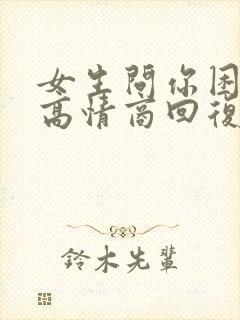 女生問你困
高情商回復
鈴木先輩